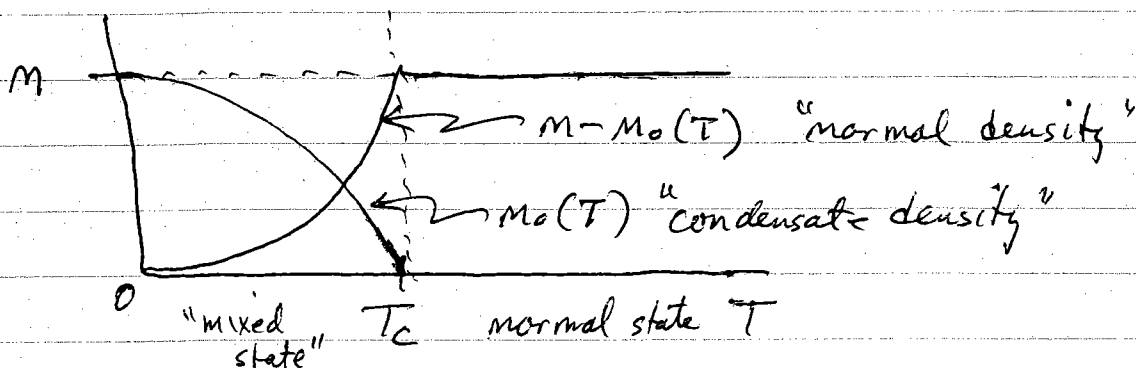 n
n - n₀(T) "normal density"
n₀(T) "condensate density"
0 "mixed state" Tc normal state T